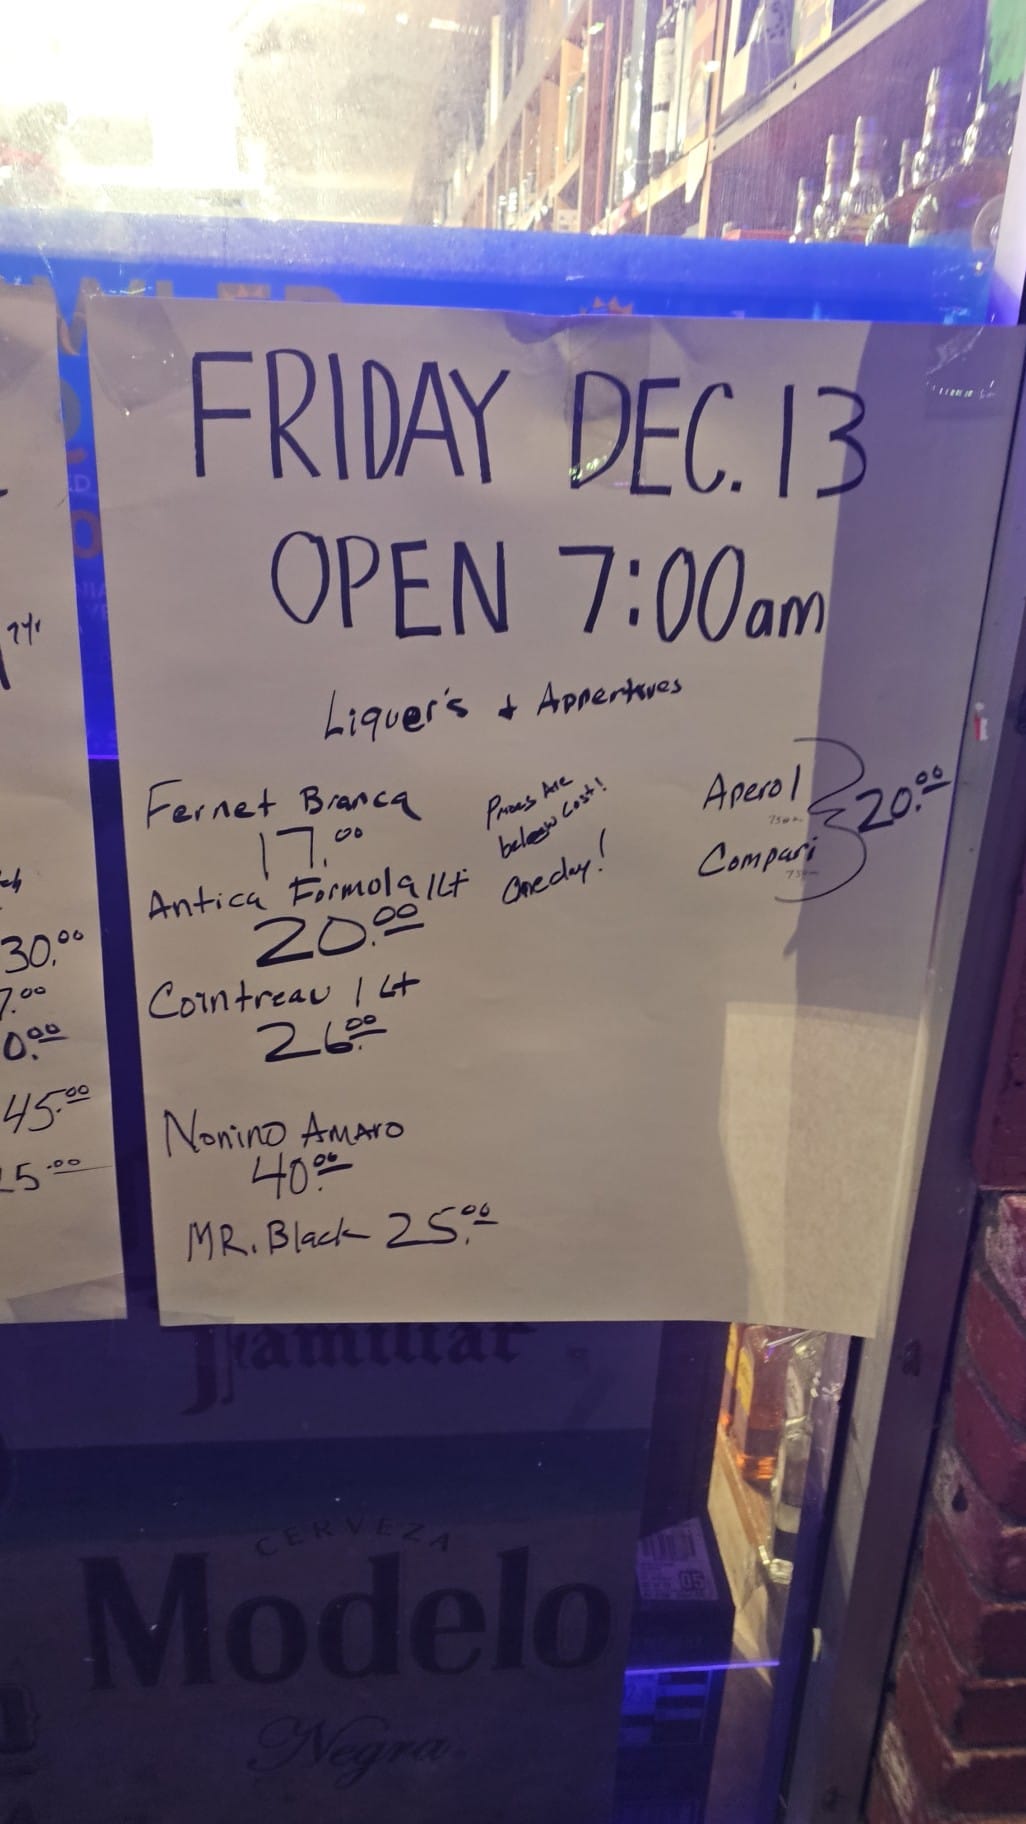 FRIDAY DEC. 13
OPEN 7:00am
Liquer's + Appertives
Fernet Branca
17.00
Antica Formola 1Lt
20.00
Cointreau 1 Lt
26.00
Nonino AMARO
40.00
MR. Black 25.00
Prices Are
below cost!
One day!
Aperol
750m
Compari
750m
20.00
yr
30.00
7.00
0.00
45.00
5.00
Familiar
CERVEZA
Modelo
Negra
05